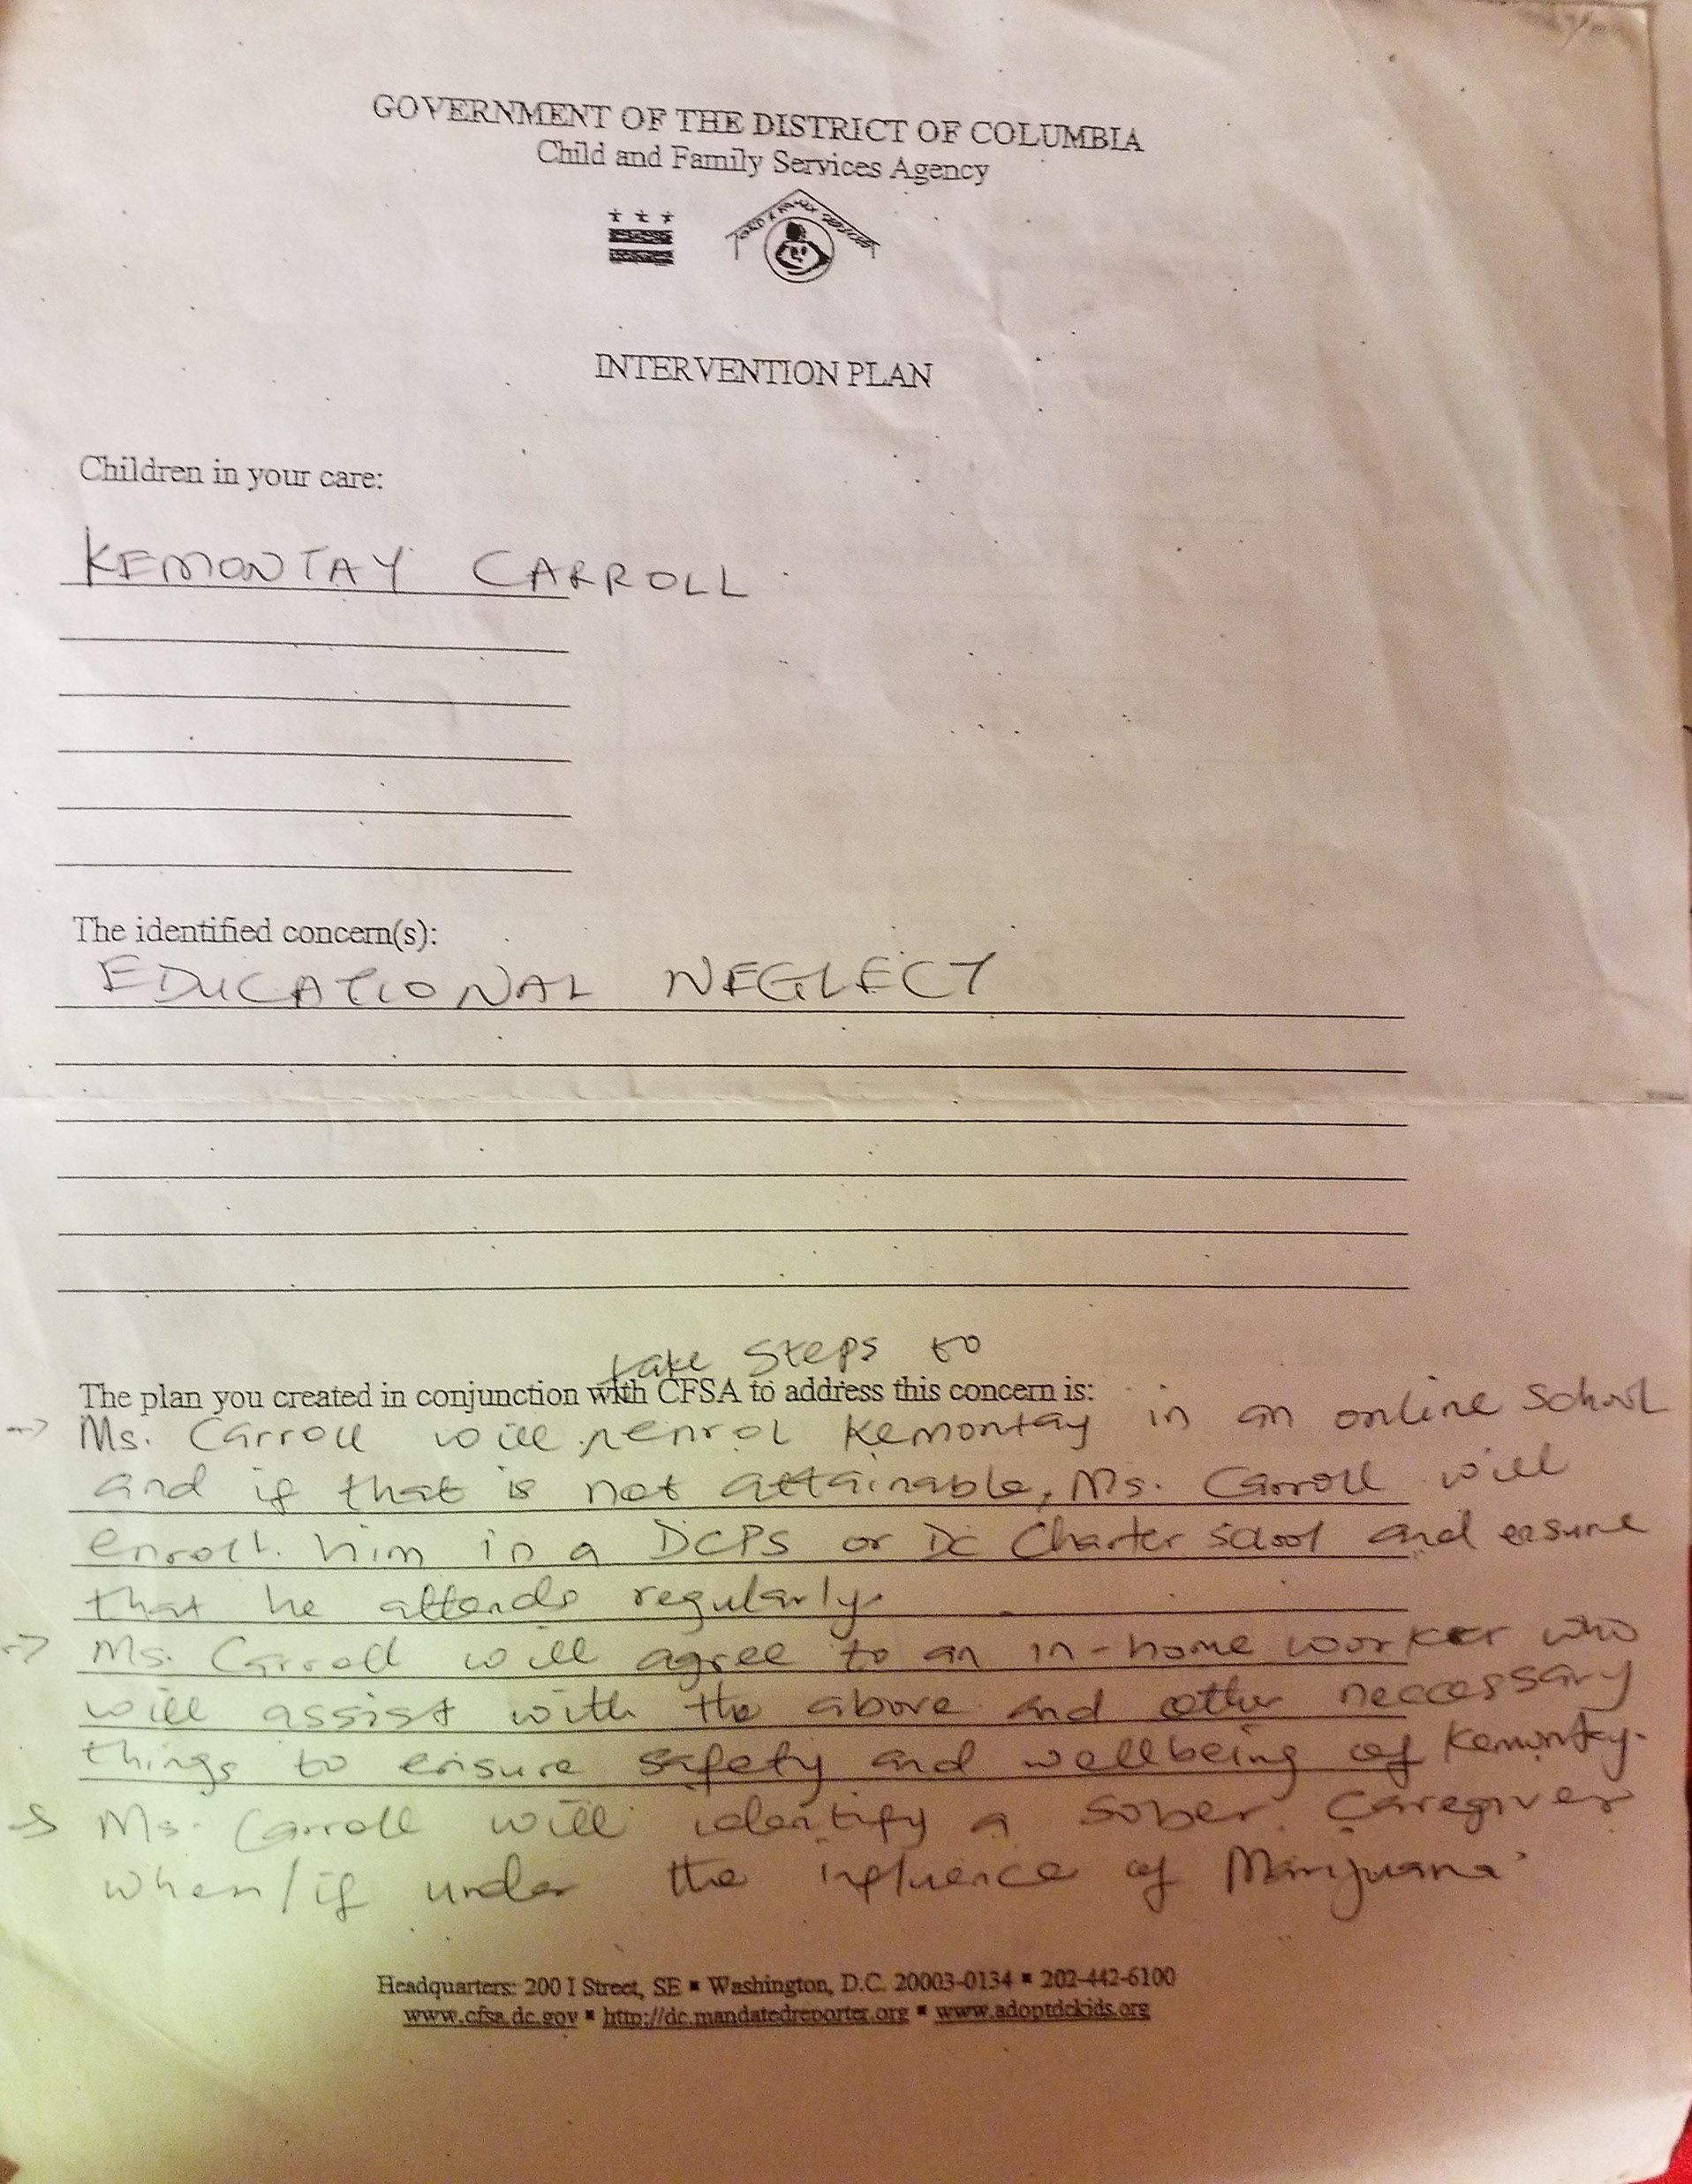 GOVERNMENT OF THE DISTRICT OF COLUMBIA
Child and Family Services Agency
CHILD & FAMILY SERVICES
INTERVENTION PLAN
Children in your care:
KEMONTAY CARROLL
The identified concern(s):
EDUCATIONAL NEGLECT
take steps to
The plan you created in conjunction with CFSA to address this concern is:
→ Ms. Carroll will enrol Kemontay in an online school
and if that is not attainable, Ms. Carroll will
enroll him in a DCPS or DC Charter school and ensure
that he attends regularly.
→ Ms. Carroll will agree to an in-home worker who
will assist with the above and other neccessary
things to ensure safety and wellbeing of Kemontay.
→ Ms. Carroll will identify a sober caregiver
when/if under the influence of Marijuana.
Headquarters: 200 I Street, SE ▪ Washington, D.C. 20003-0134 ▪ 202-442-6100
www.cfsa.dc.gov ▪ http://dc.mandatedreporter.org ▪ www.adoptdckids.org